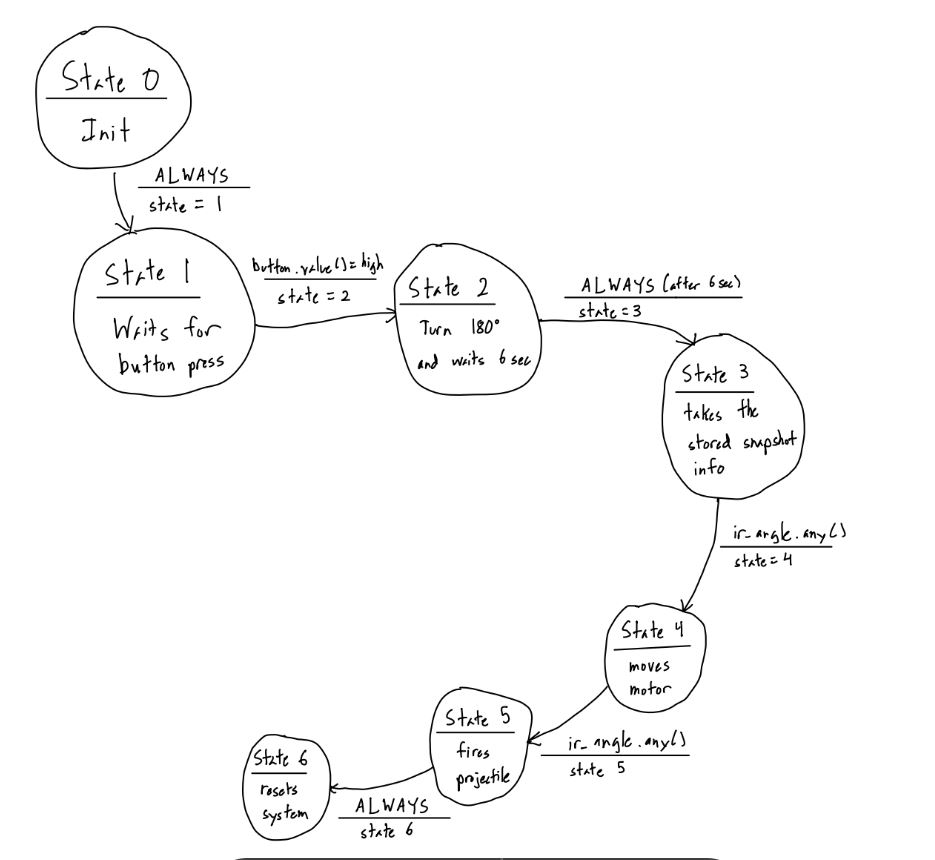 State 0
Init
ALWAYS
state = 1
State 1
Waits for
button press
button.value()= high
state = 2
State 2
Turn 180°
and waits 6 sec
ALWAYS (after 6 sec)
state = 3
State 3
takes the
stored snapshot
info
ir_angle.any()
state = 4
State 4
moves
motor
ir_angle.any()
state 5
State 5
fires
projectile
ALWAYS
state 6
State 6
resets
system